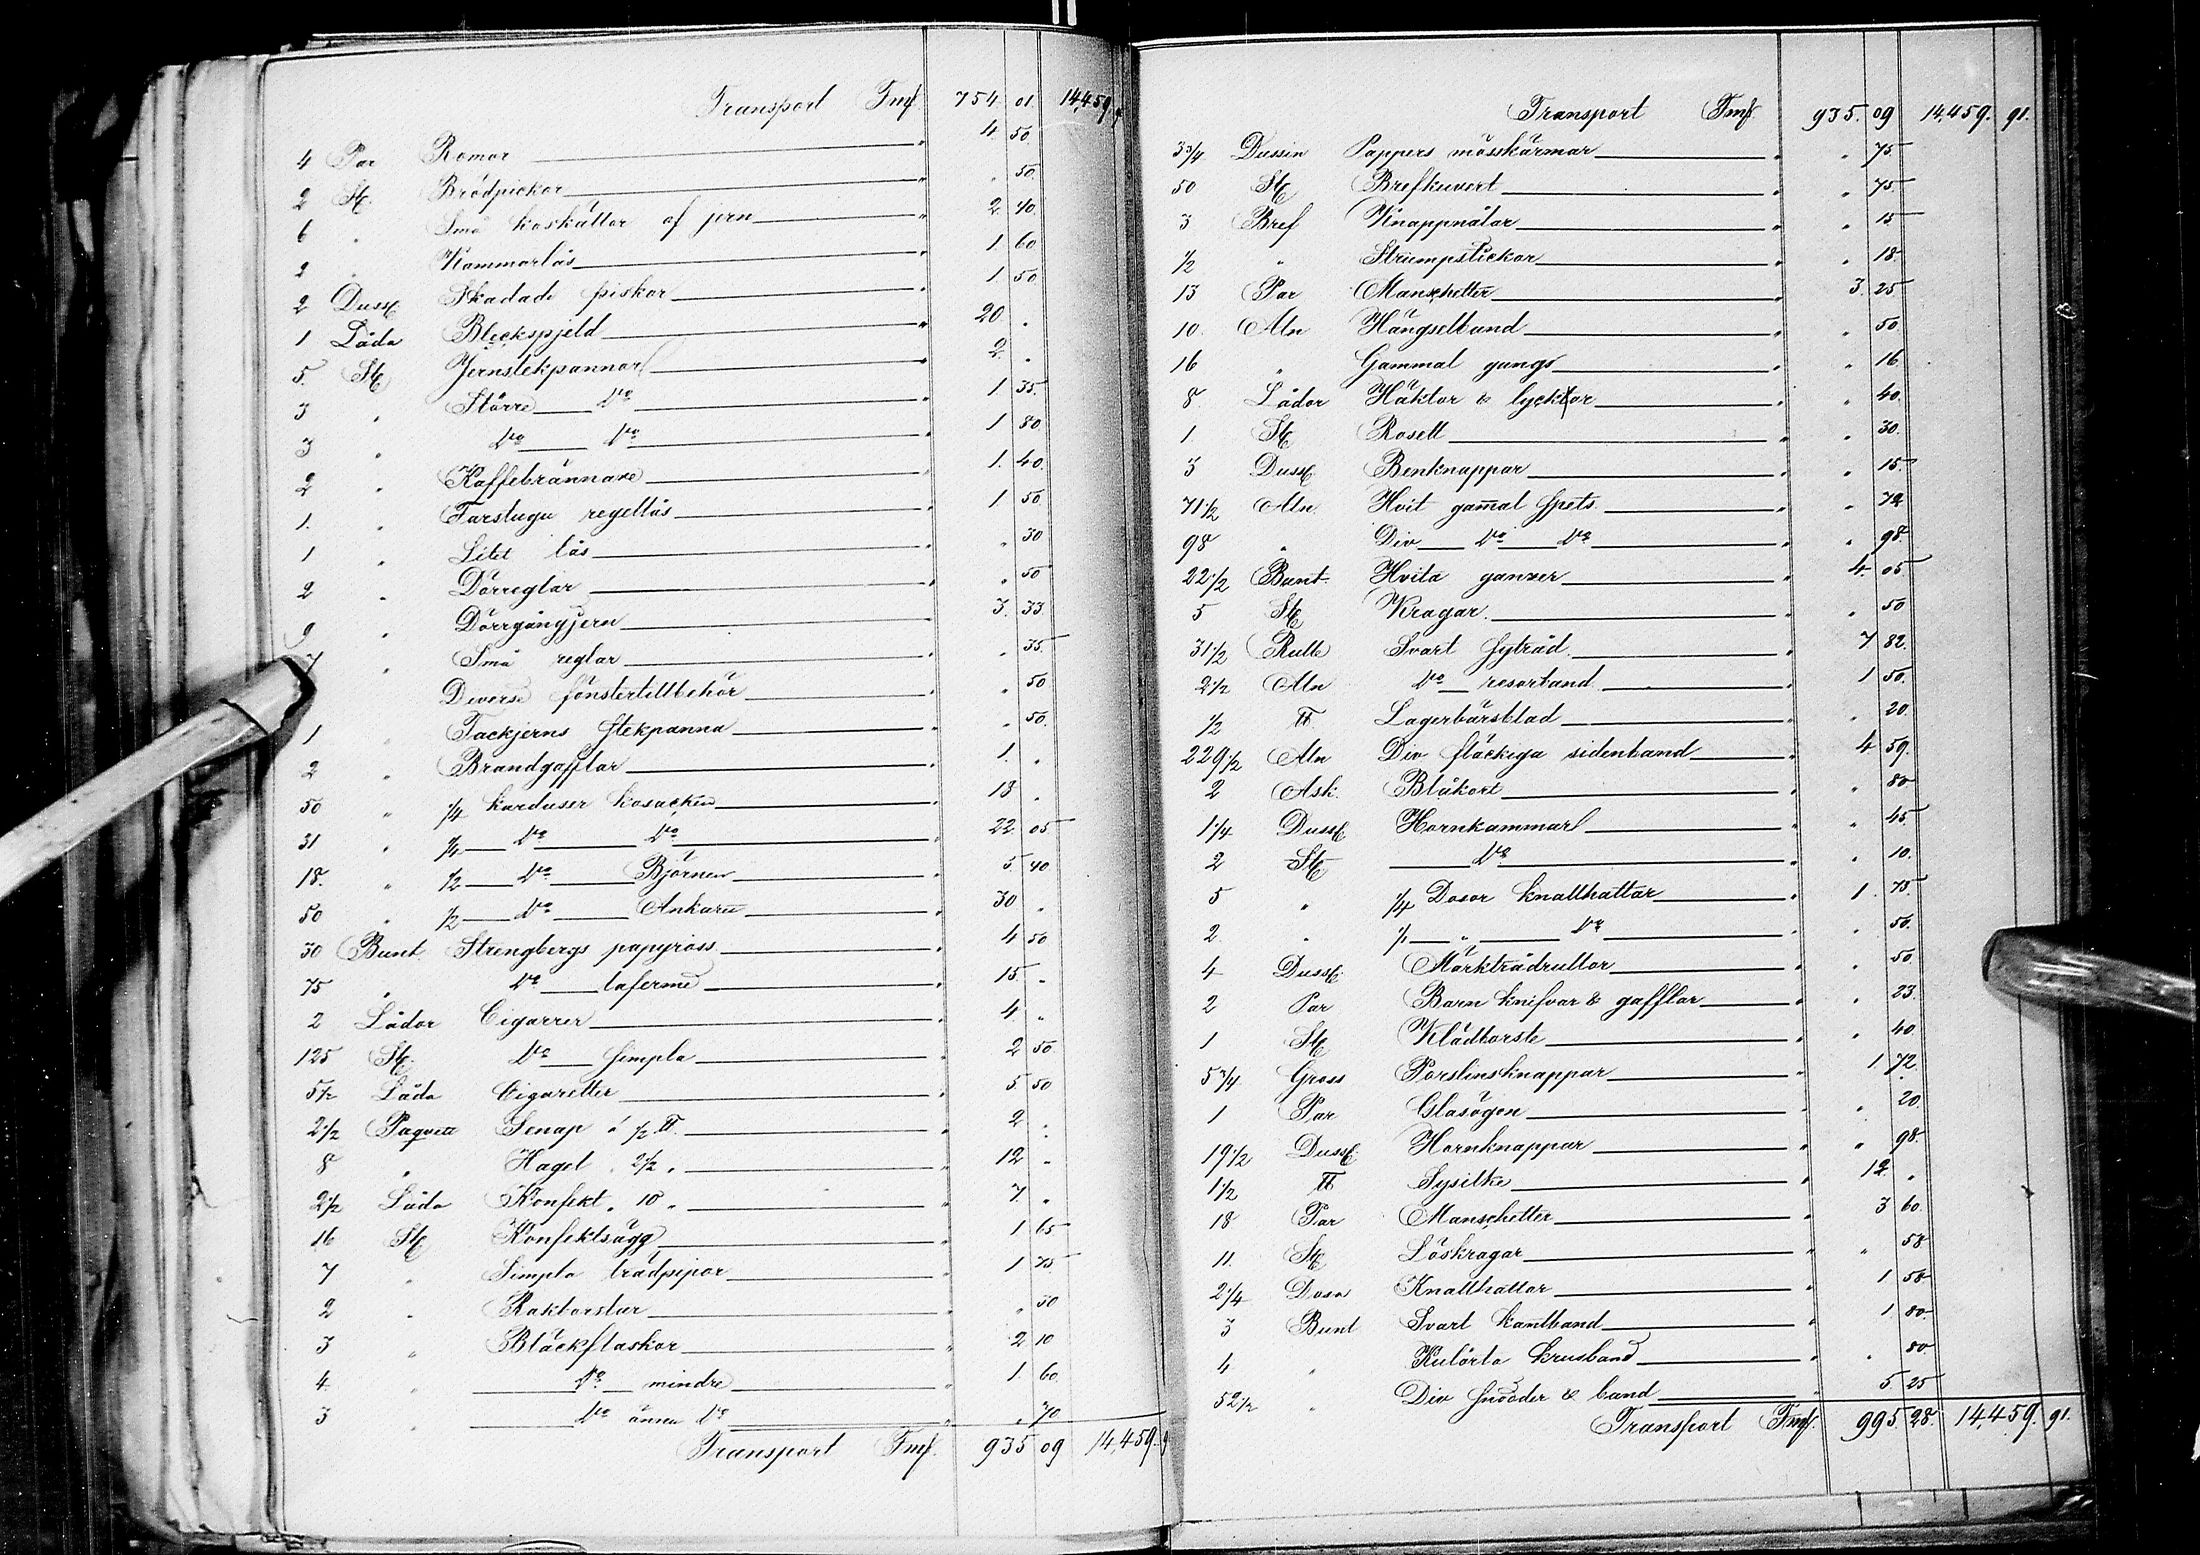 Transport Fmk 754 01. 14,459.
4 Par Remor " 4. 50.
2 St. Brödpickor " " 50.
6 " Små koskällor af jern " 2. 40.
2 " Kammarlås " 1. 60
2 Duss Skadade piskor " 1. 50
1 Låda Bleckspjeld " 20 "
5. St. Jernstekpannor " 2. "
3 " Större do " 1 35.
3 " do do " 1 80.
2 " Kaffebrännare " 1. 40.
1. " Farstugu regellås " 1 50.
1 " Litet lås " " 30
2 " Dörreglar " " 50
9 " Dörrgångjern " 3. 33
7 " Små reglar " " 35.
Diverse fönstertillbehör " " 50
1 " Tackjerns stekpanna " " 50.
2 " Brandgafflar " 1. "
50 " 1/4 karduser kosacken " 13 "
31 " 1/4 do do " 22 05
18. " 1/2 do Björnen " 5. 40
50 " 1/2 do Ankaru " 30 "
30 Bunt Strengbergs papyross " 4 50
75 " do laferme " 15 "
2 Lådor Cigarrer " 4 "
125 St. do simpla " 2 50.
5 1/2 Låda Cigaretter " 5 50
2 1/2 Paquett Senap á 1/2 ℔. " 2 "
8 " Hagel " 2 1/2 " " 12 "
2 1/2 Låda Konfekt " 10 " " 7. "
16 St. Konfektsägg " 1 65
7 " Simpla trädpipor " 1 75
2 " Rakborstar " " 50
3 " Bläckflaskor " 2 10
4 " do mindre " 1 60
3 " do ännu do " " 70
Transport Fmk. 935 09 14,459.
Transport Fmk 935. 09 14,459. 91.
3 3/4 Dussin Pappers mösskärmar " " 75
50 St. Brefkuvert " " 75
3 Bref Knappnålar " " 15
1/2 " Strumpstickor " " 18.
13 Par Manschetter " 3. 25
10. Aln Hängselband " " 50
16 " Gammal gungs " " 16
8 Lådor Häktor & lycktor " " 40.
1. St. Rosett " " 30.
3 Duss Benknappar " " 15
71 1/2 Aln Hvit gam̄al spets " " 72
98 " Div do do " " 98.
22 1/2 Bunt Hvita ganser " 4. 05
5 St. Kragar. " " 50
31 1/2 Rulle Svart sytråd. " 7 82.
2 1/2 Aln do resorband. " 1 50.
1/2 ℔ Lagerbärsblad " " 20.
229 1/2 Aln Div fläckiga sidenband " 4 59.
2 Ask Blåkort " " 80
1 1/4 Duss Hornkammar " " 45
2 St. do " " 10.
5 " 1/4 Dosor knallhattar " 1. 75.
2. " 1/1 " do " " 50.
4 Duss Märktrådrullor " " 50
2 Par Barn knifvar & gafflar " " 23.
1 St. Klädborste " " 40
5 3/4 Gross Porslinsknappar " 1 72.
1 Par Glasögon " " 20.
19 1/2 Duss Hornknappar " " 98.
1 1/2 ℔ Sysilke " 12 "
18 Par Manschetter " 3 60.
11. St. Löskragar " " 58
2 1/4 Dosa Knallhattar " 1 58
3 Bunt Svart kantband " 1. 80.
4 " Kulörta krusband " " 80
52 1/2 " Div snodder & band " 5. 25
Transport Fmk. 995 28. 14,459. 91.